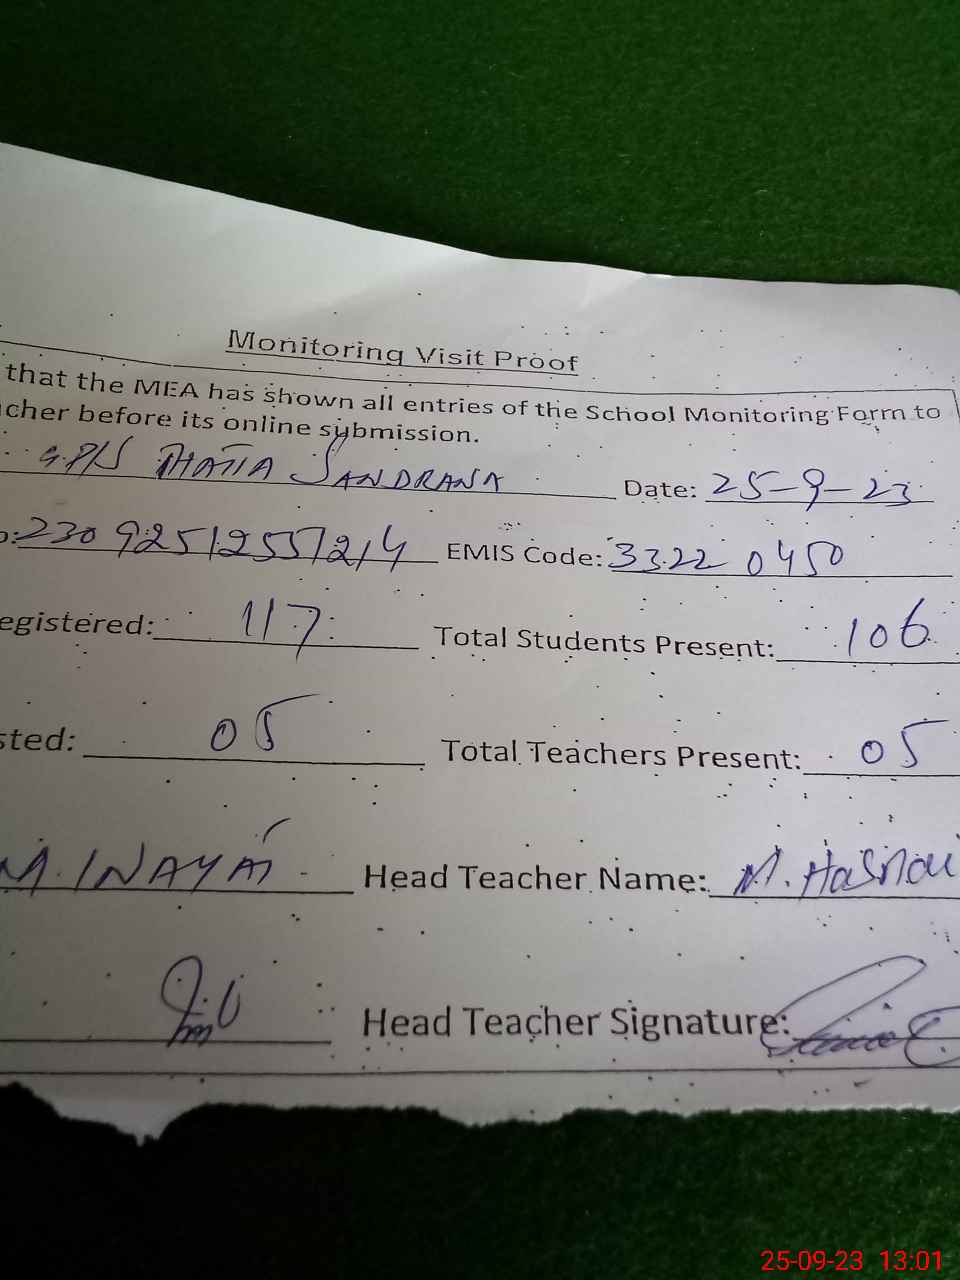 Monitoring Visit Proof
that the MEA has shown all entries of the School Monitoring Form to
cher before its online submission.
G.P/S THATTA SANDRANA Date: 25-9-23
o: 230925125571214 EMIS Code: 33220450
egistered: 117 Total Students Present: 106
sted: 05 Total Teachers Present: 05
M. INAYAT Head Teacher Name: M. Hasnai
Head Teacher Signature:
25-09-23 13:01